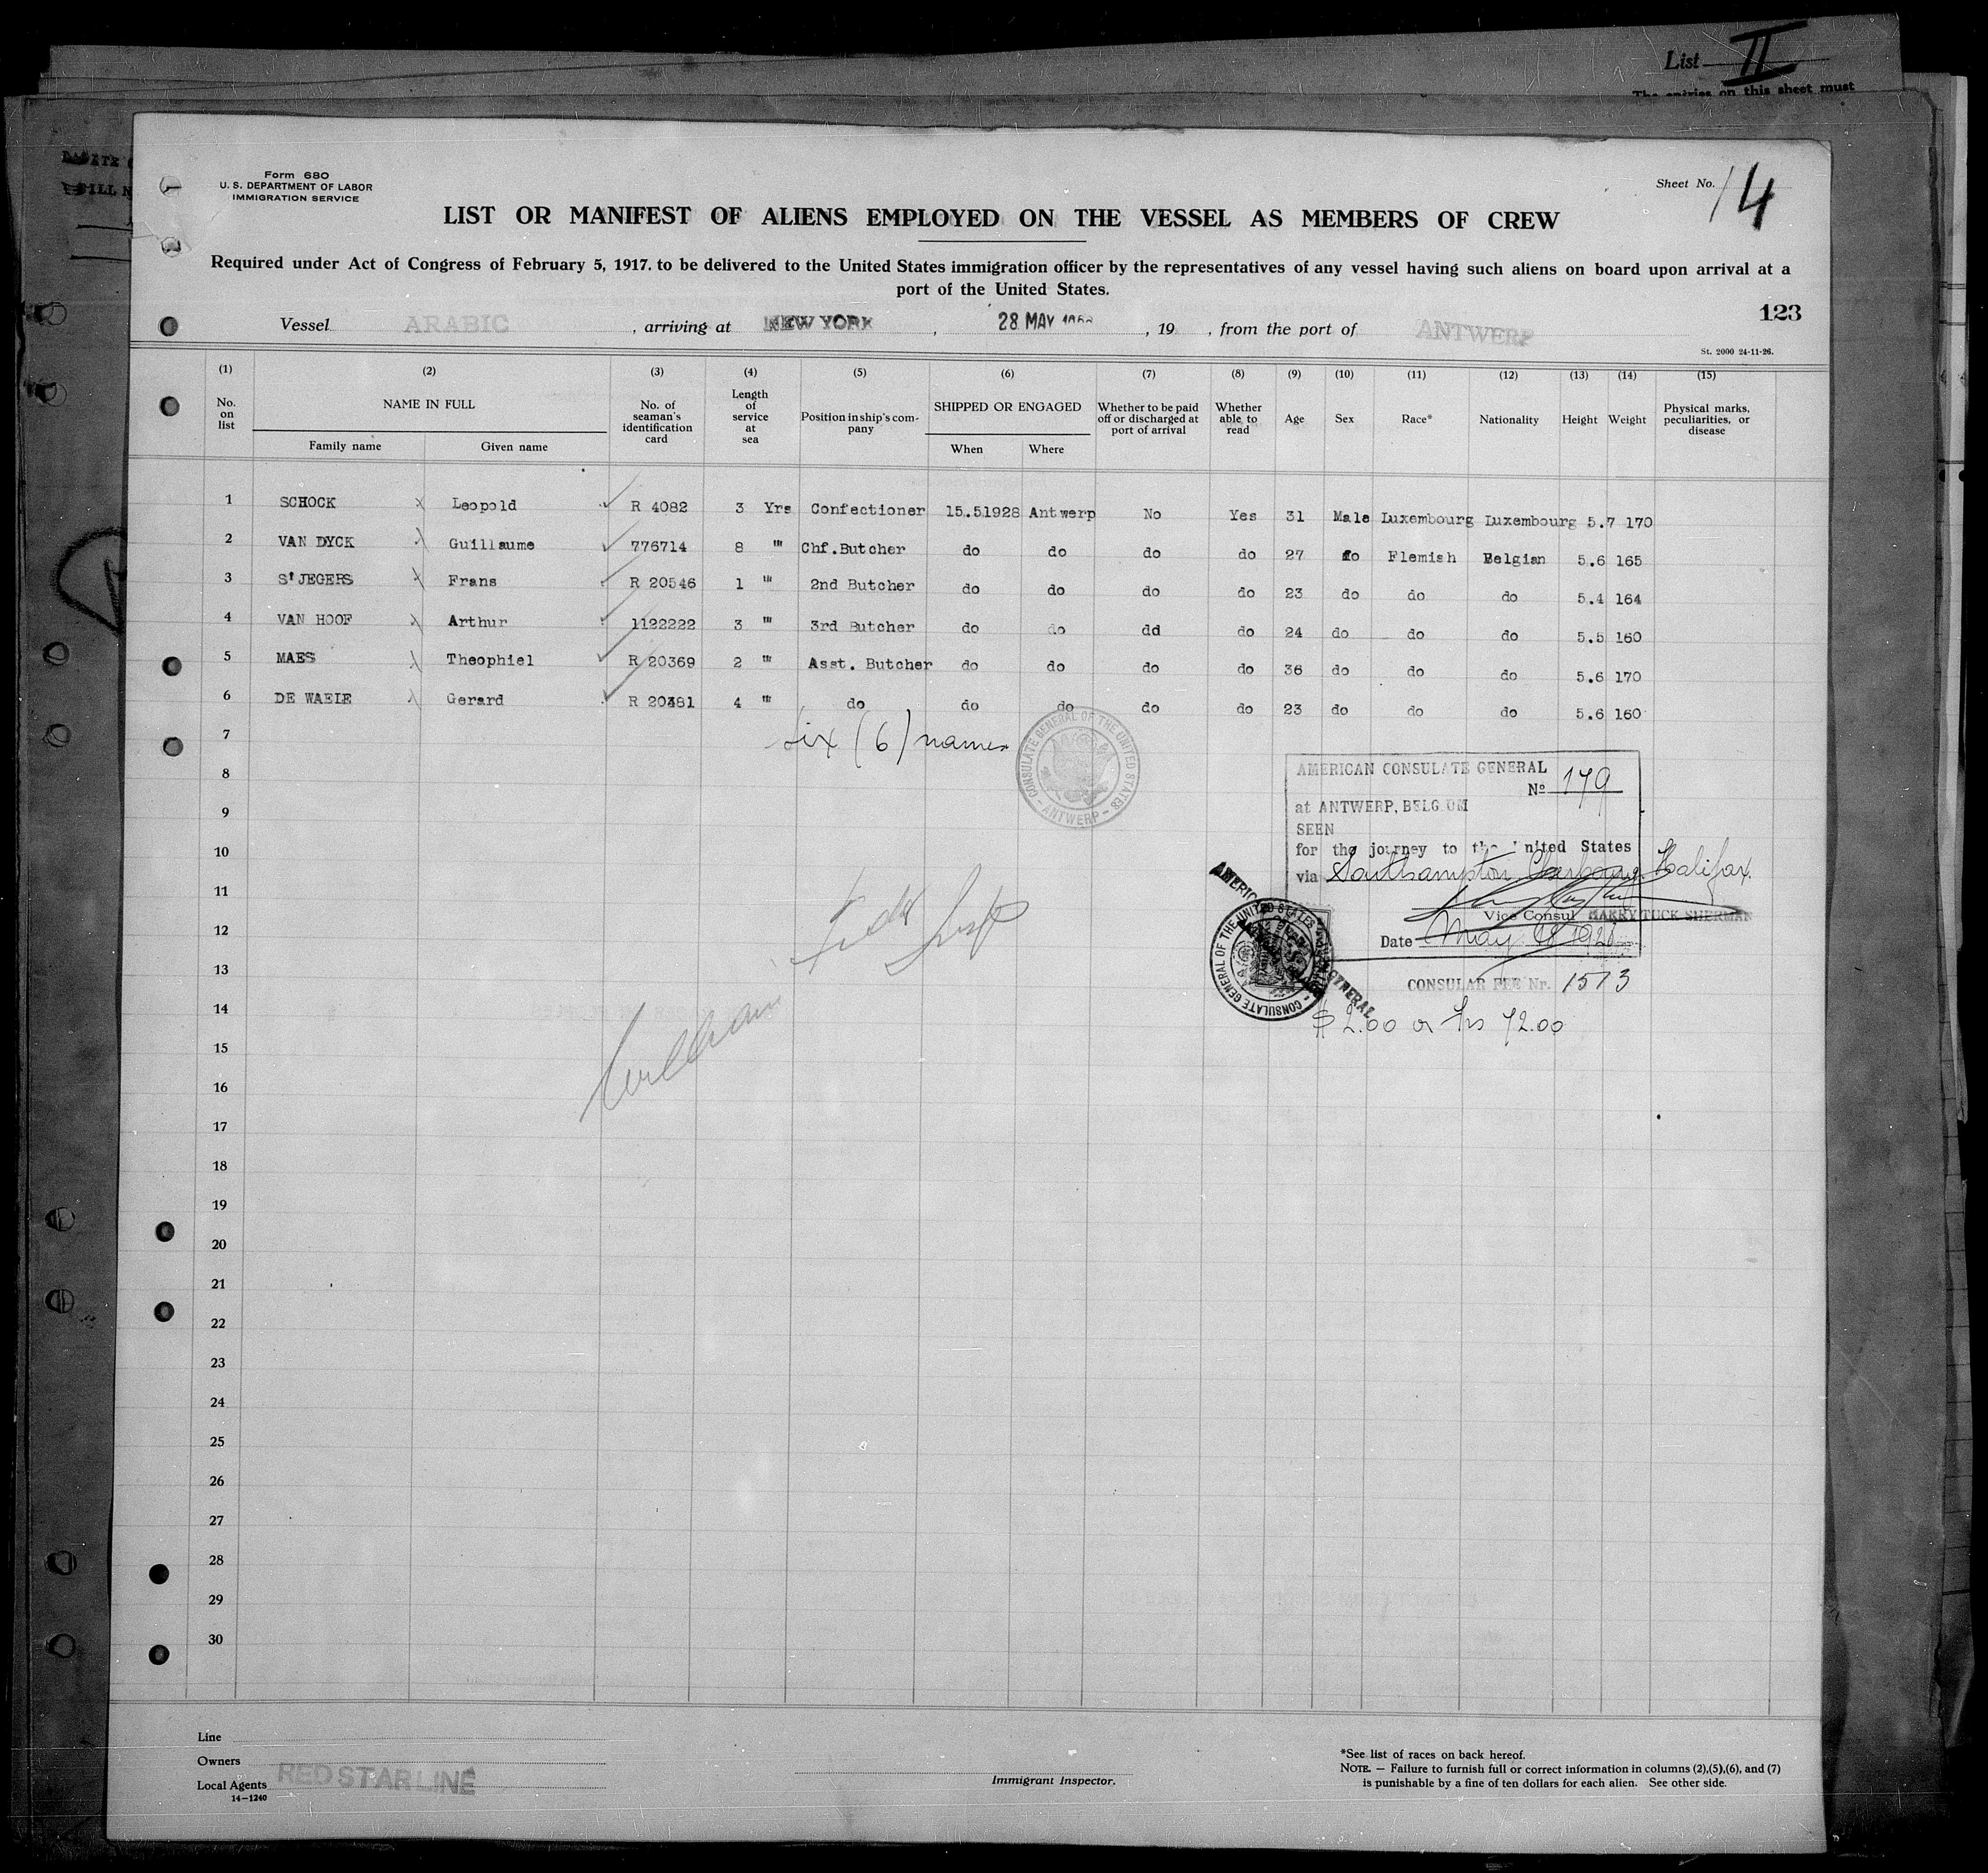 List II
The entries on this sheet must
Form 680
U. S. DEPARTMENT OF LABOR
IMMIGRATION SERVICE
Sheet No. 14
LIST OR MANIFEST OF ALIENS EMPLOYED ON THE VESSEL AS MEMBERS OF CREW
Required under Act of Congress of February 5, 1917. to be delivered to the United States immigration officer by the representatives of any vessel having such aliens on board upon arrival at a
port of the United States.
123
Vessel ARABIC , arriving at NEW YORK , 28 MAY , 19 , from the port of ANTWERP
St. 2000 24-11-26.
(1) (2) (3) (4) (5) (6) (7) (8) (9) (10) (11) (12) (13) (14) (15)
No. on list NAME IN FULL No. of seaman's identification card Length of service at sea Position in ship's company SHIPPED OR ENGAGED Whether to be paid off or discharged at port of arrival Whether able to read Age Sex Race* Nationality Height Weight Physical marks, peculiarities, or disease
Family name Given name When Where
1 SCHOCK Leopold R 4082 3 Yrs Confectioner 15.51928 Antwerp No Yes 31 Male Luxembourg Luxembourg 5.7 170
2 VAN DYCK Guillaume 776714 8 " Chf.Butcher do do do do 27 do Flemish Belgian 5.6 165
3 StJEGERS Frans R 20546 1 " 2nd Butcher do do do do 23 do do do 5.4 164
4 VAN HOOF Arthur 1122222 3 " 3rd Butcher do do dd do 24 do do do 5.5 160
5 MAES Theophiel R 20369 2 " Asst. Butcher do do do do 36 do do do 5.6 170
6 DE WAELE Gerard R 20481 4 " do do do do do 23 do do do 5.6 160
7 six (6) names
CONSULATE GENERAL OF THE UNITED STATES - ANTWERP -
8
9
10
11
12
13
14
15
16
17
18
19
20
21
22
23
24
25
26
27
28
29
30
AMERICAN CONSULATE GENERAL
No 179
at ANTWERP, BELGIUM
SEEN
for the journey to the United States
via Southampton Cherbourg Halifax.
Vice Consul HARRY TUCK SHERMAN
Date May 18 1928
CONSULAR FEE Nr. 1573
$ 2.00 or frs 72.00
CONSULATE GENERAL OF THE UNITED STATES
Line
Owners
Local Agents RED STAR LINE
14-1240
Immigrant Inspector.
*See list of races on back hereof.
NOTE. — Failure to furnish full or correct information in columns (2),(5),(6), and (7)
is punishable by a fine of ten dollars for each alien. See other side.